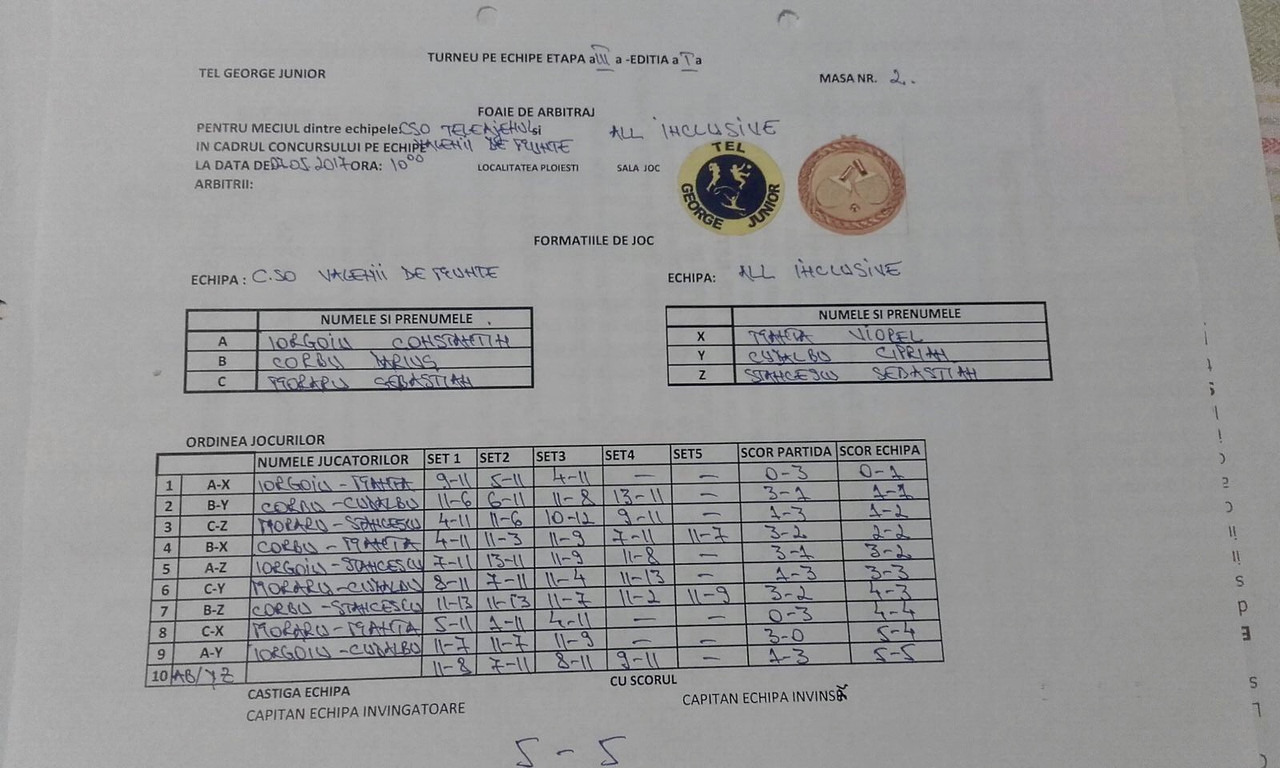 TURNEU PE ECHIPE ETAPA a III a -EDITIA a I a
TEL GEORGE JUNIOR
MASA NR. 2.
FOAIE DE ARBITRAJ
PENTRU MECIUL dintre echipele: CSO TELEAJENUL si ALL INCLUSIVE
IN CADRUL CONCURSULUI PE ECHIPE VALENII DE MUNTE
LA DATA DE 05.2017 ORA: 10 00 LOCALITATEA PLOIESTI SALA JOC
ARBITRII:
TEL GEORGE JUNIOR
FORMATIILE DE JOC
ECHIPA : C.SO VALENII DE MUNTE
ECHIPA: ALL INCLUSIVE
NUMELE SI PRENUMELE
A IORGOIU CONSTANTIN
B CORBU DARIUS
C MORARU SEBASTIAN
NUMELE SI PRENUMELE
X MANTA VIOREL
Y CUDALBU CIPRIAN
Z STANCESCU SEBASTIAN
ORDINEA JOCURILOR
NUMELE JUCATORILOR SET 1 SET2 SET3 SET4 SET5 SCOR PARTIDA SCOR ECHIPA
1 A-X IORGOIU - MANTA 9-11 5-11 4-11 — — 0-3 0-1
2 B-Y CORBU - CUDALBU 11-6 6-11 11-8 13-11 — 3-1 1-1
3 C-Z MORARU - STANCESCU 4-11 11-6 10-12 9-11 — 1-3 1-2
4 B-X CORBU - MANTA 4-11 11-3 11-9 7-11 11-7 3-2 2-2
5 A-Z IORGOIU - STANCESCU 7-11 13-11 11-9 11-8 — 3-1 3-2
6 C-Y MORARU - CUDALBU 8-11 7-11 11-4 11-13 — 1-3 3-3
7 B-Z CORBU - STANCESCU 11-13 11-13 11-7 11-2 11-9 3-2 4-3
8 C-X MORARU - MANTA 5-11 1-11 4-11 — — 0-3 4-4
9 A-Y IORGOIU - CUDALBU 11-7 11-7 11-9 — — 3-0 5-4
10 AB/YZ 11-8 7-11 8-11 9-11 — 1-3 5-5
CASTIGA ECHIPA CU SCORUL
CAPITAN ECHIPA INVINGATOARE CAPITAN ECHIPA INVINSĂ
5 - 5